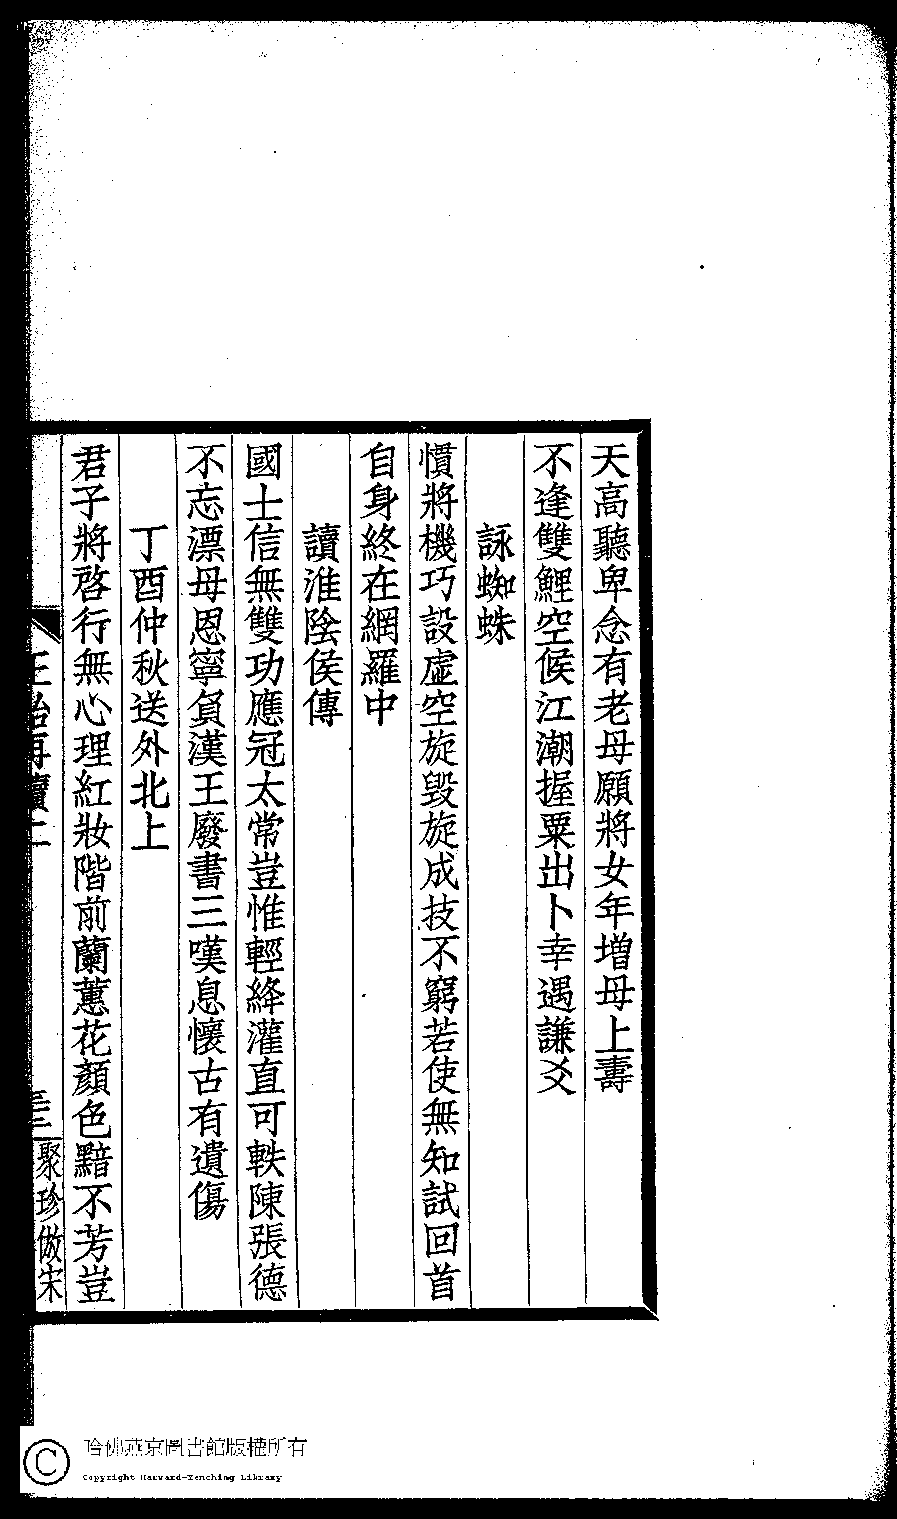 天高聽卑念有老母願將女年增母上壽
不逢雙鯉空候江潮握粟出卜幸遇謙爻
詠蜘蛛
慣將機巧設虛空旋毀旋成技不窮若使無知試回首
自身終在網羅中
讀淮陰侯傳
國士信無雙功應冠太常豈惟輕絳灌直可軼陳張德
不忘漂母恩寧負漢王廢書三嘆息懷古有遺傷
丁酉仲秋送外北上
君子將啓行無心理紅妝階前蘭蕙花顏色黯不芳豈
聚珍倣宋
哈佛燕京圖書館版權所有
Copyright Harvard-Yenching Library